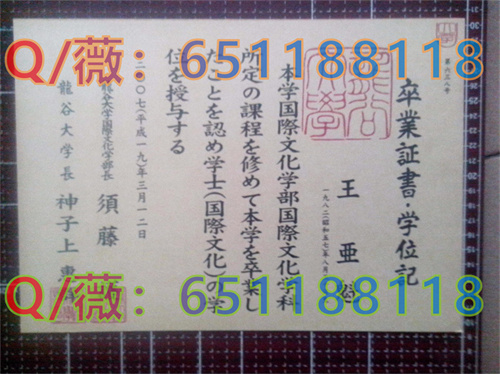 Q/薇：651188118
卒業証書・学位記
王 亜
本学国際文化学部国際文化学科
所定の課程を修めて本学を卒業し
たことを認め学士(国際文化)の学
位を授与する
二〇〇七(平成一九)年三月一二日
龍谷大学国際文化学部長 須藤
龍谷大学長 神子上
Q/薇：651188118